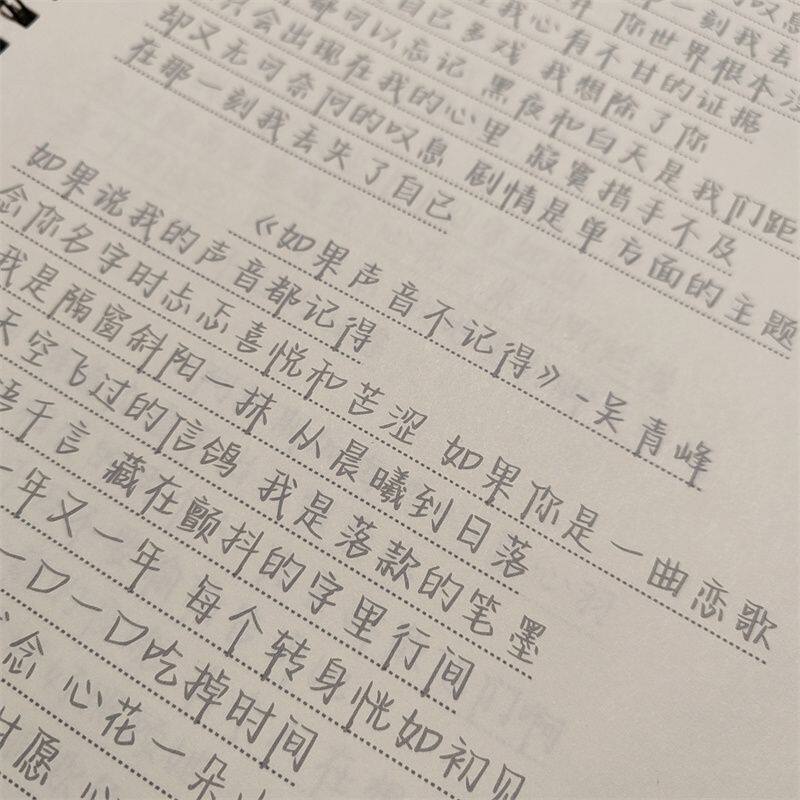 一刻我丢
你世界根本没
在我心有不甘的证据
自己多戏 我想除了你
都可以忘记 黑夜和白天是我们距
会出现在我的心里 寂寞措手不及
却又无可奈何的叹息 剧情是单方面的主题
在那一刻我丢失了自己
《如果声音不记得》-吴青峰
如果说我的声音都记得
念你名字时忐忑喜悦和苦涩 如果你是一曲恋歌
我是隔窗斜阳一抹 从晨曦到日落
天空飞过的信鸽 我是落款的笔墨
语千言 藏在颤抖的字里行间
一年又一年 每个转身恍如初见
一口一口吃掉时间
念 心花一朵
甘愿 心